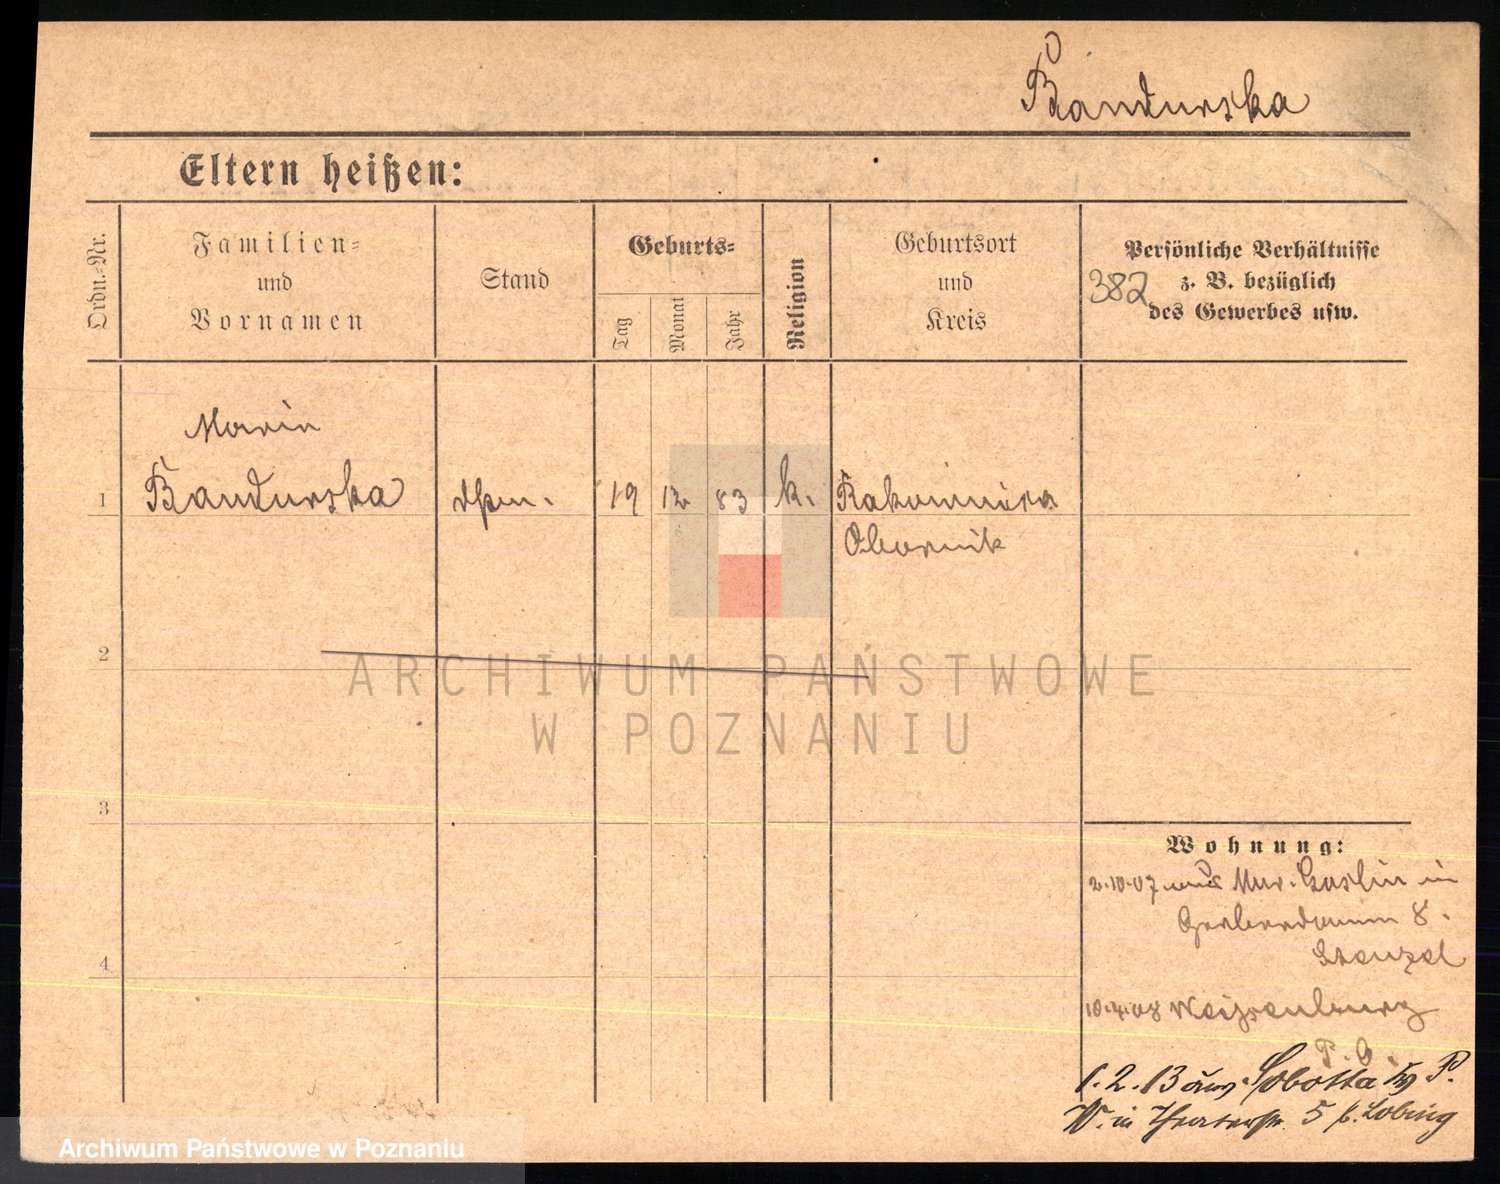 Bandurska
Eltern heißen:
Ordn.-Nr.
Familien-
und
Vornamen
Stand
Geburts-
Tag
Monat
Jahr
Religion
Geburtsort
und
Kreis
Persönliche Verhältnisse
z. B. bezüglich
des Gewerbes usw.
382
Marie
1 Bandurska 19 12 83 k.
Obornik
2
ARCHIWUM PAŃSTWOWE
W POZNANIU
3
Wohnung:
2.10.07 aus Mur. Goslin in
Gerberdamm 8.
Stenzel
4
10.4.08 Weissenburg
P. O.
1.2.13 Sobotta P.
W. in Theaterstr. 5 b. Lobing
Archiwum Państwowe w Poznaniu